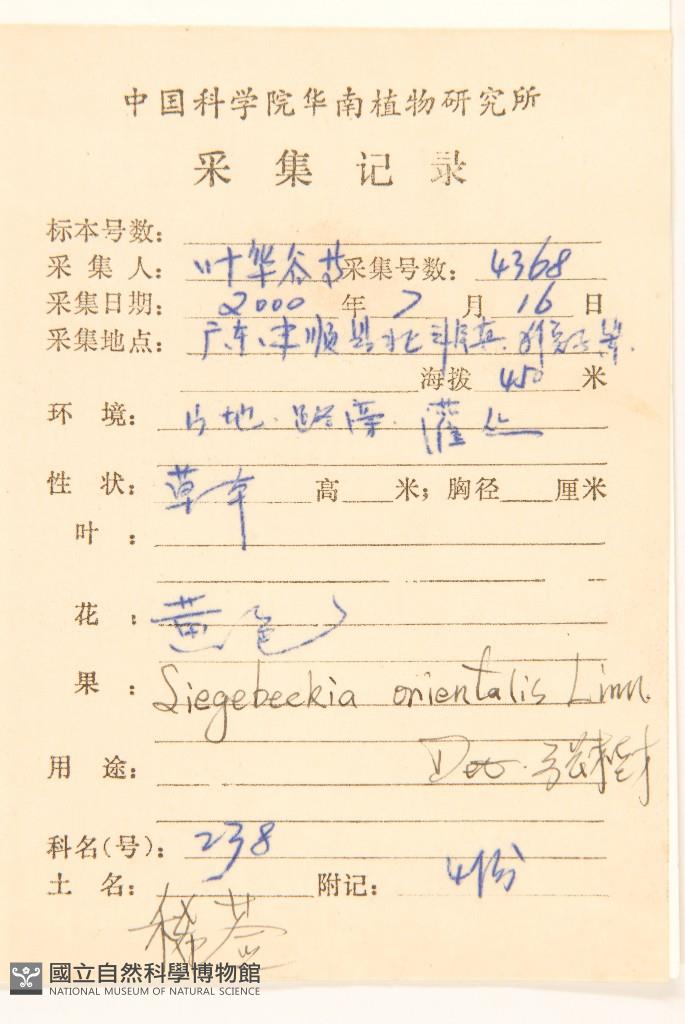 中国科学院华南植物研究所
采集记录
标本号数：
采集人： 叶华谷等 采集号数： 4368
采集日期： 2000 年 7 月 16 日
采集地点： 广东 丰顺县北斗镇
海拨 450 米
环境： 山地.路旁.灌丛
性状： 草本 高 米；胸径 厘米
叶：
花： 黄色
果： Siegebeckia orientalis Linn.
用途： Det. 张
科名(号)： 238
土名： 附记： 4份
稀莶
國立自然科學博物館
NATIONAL MUSEUM OF NATURAL SCIENCE